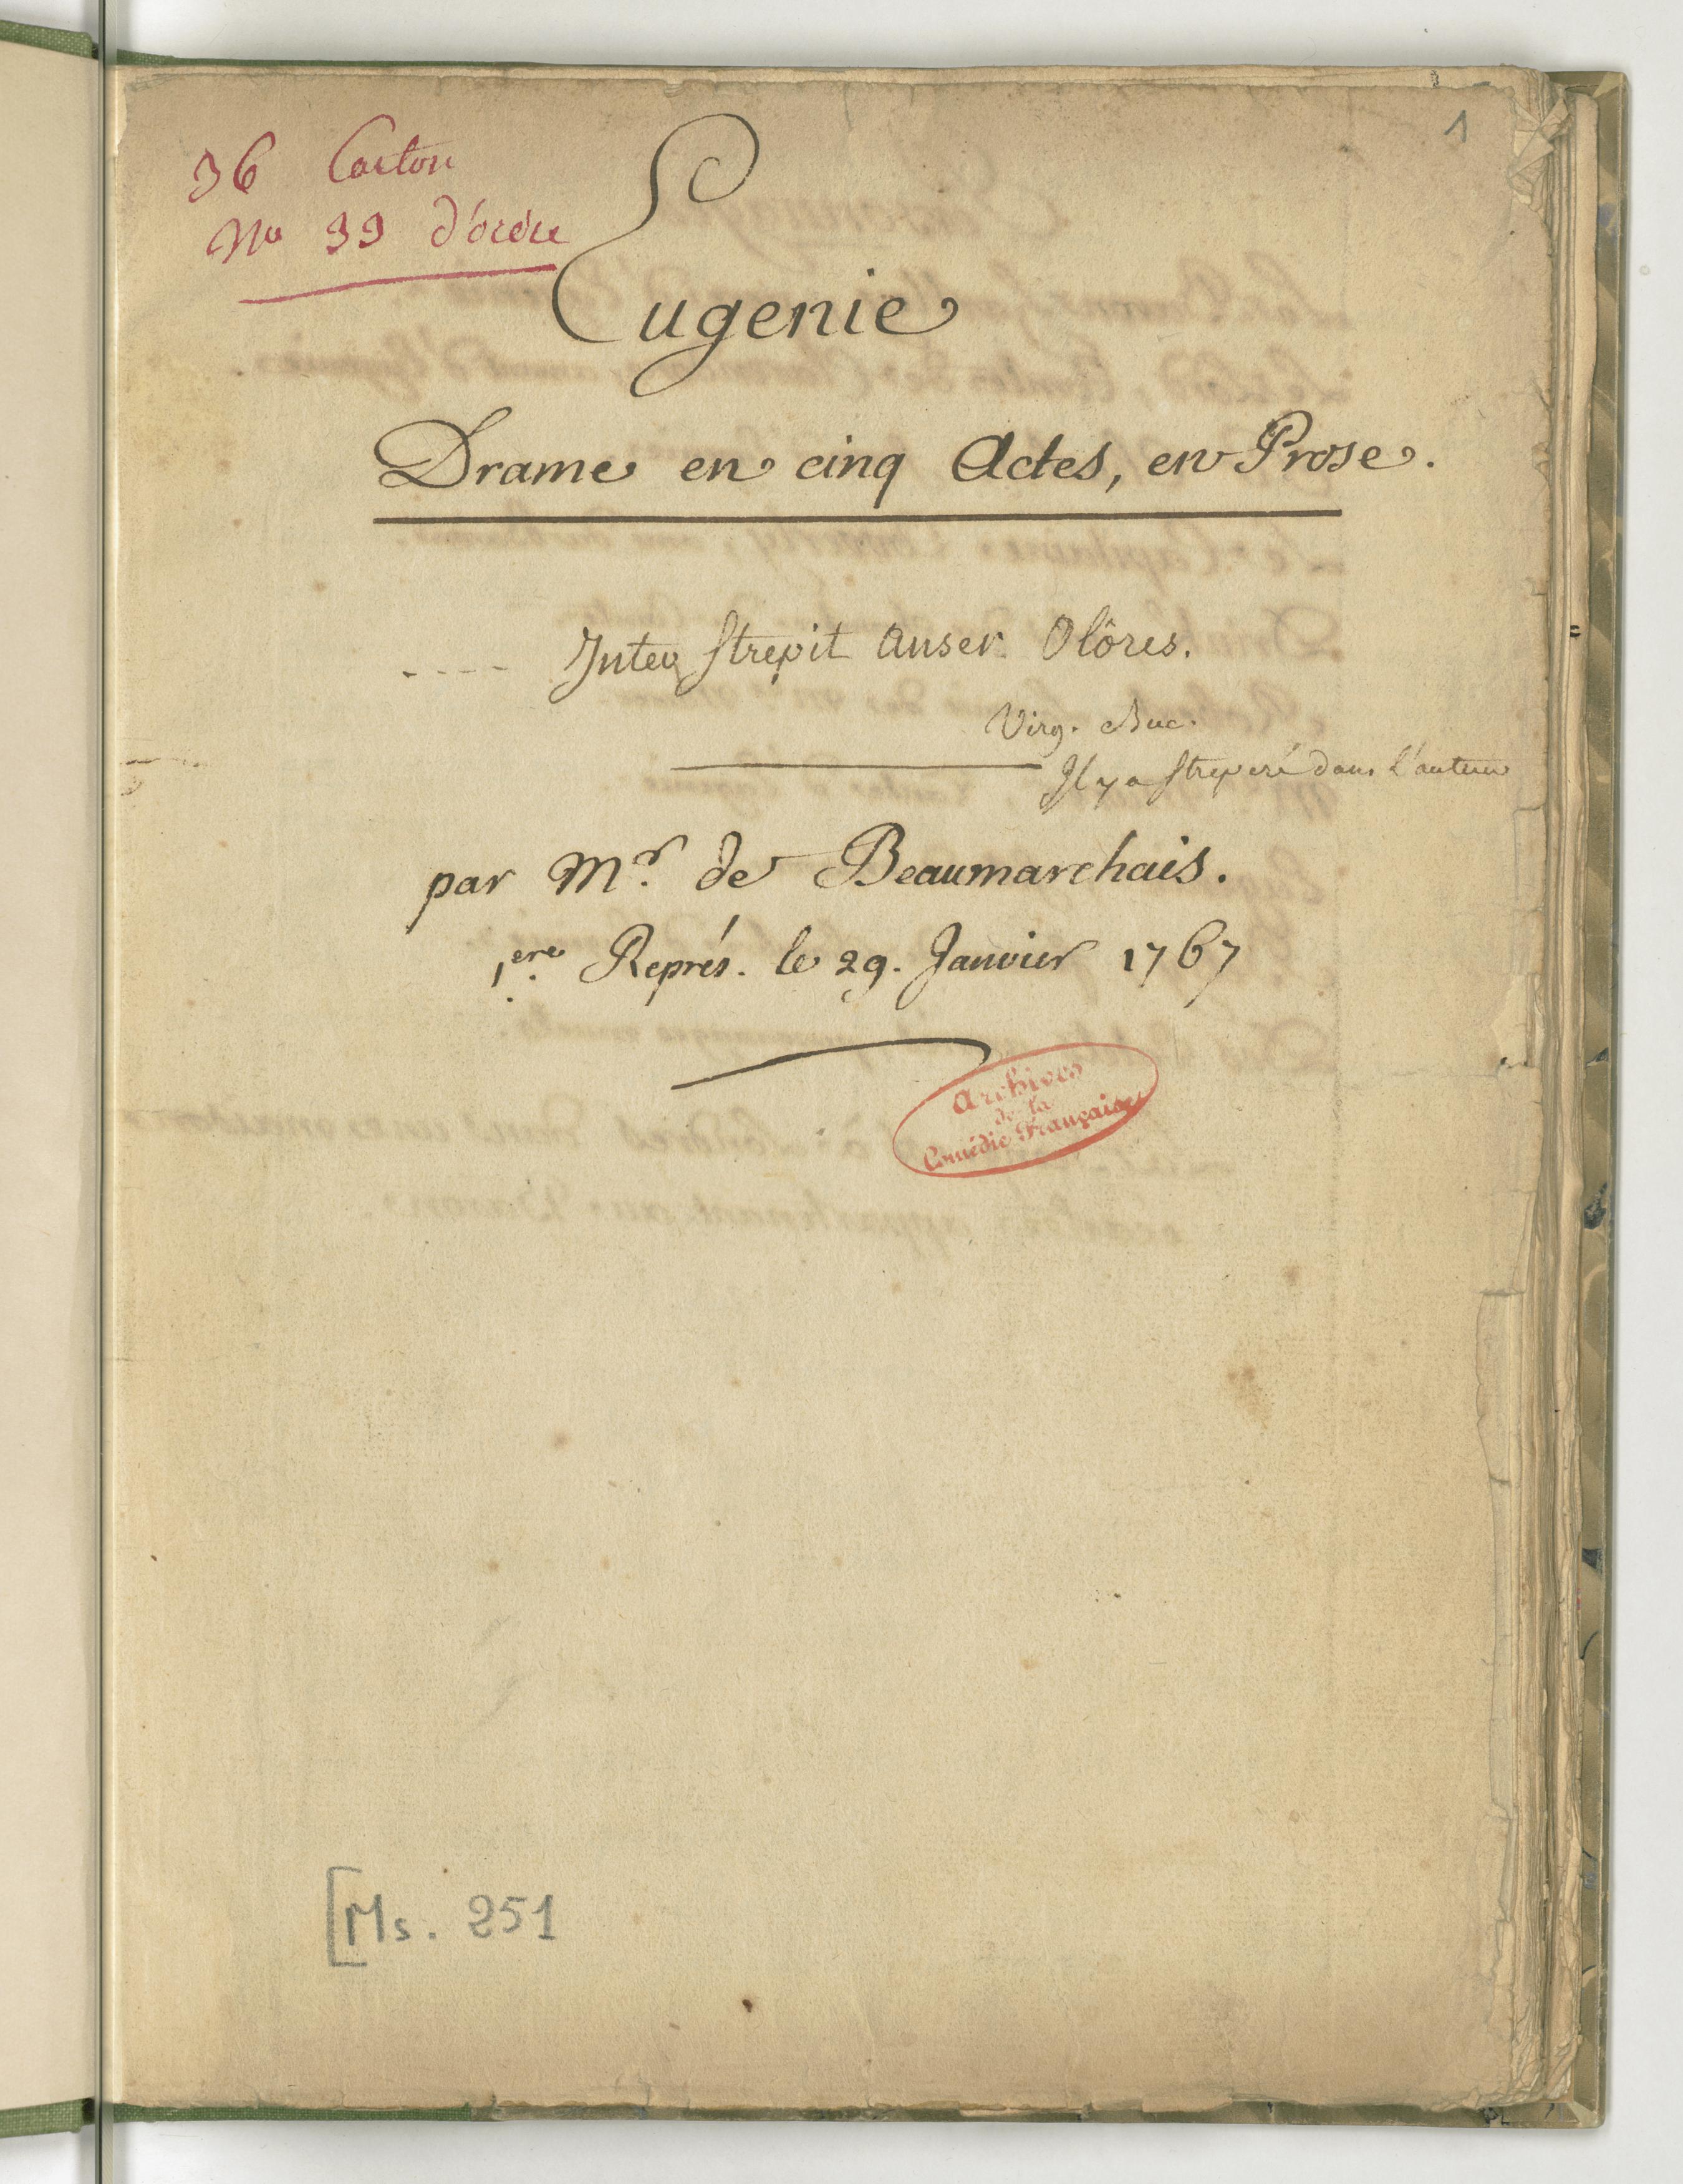 1
36 Carton
No 99 d'ordre
Eugenie
Drame en cinq Actes, en Prose.
---- Inter Strepit anser Olôres.
Virg. Buc.
Il y a Strepere dans l'auteur
par Mr. de Beaumarchais.
1ere. Représ. le 29. Janvier 1767
Archives
de la
Comédie Française
[Ms. 251